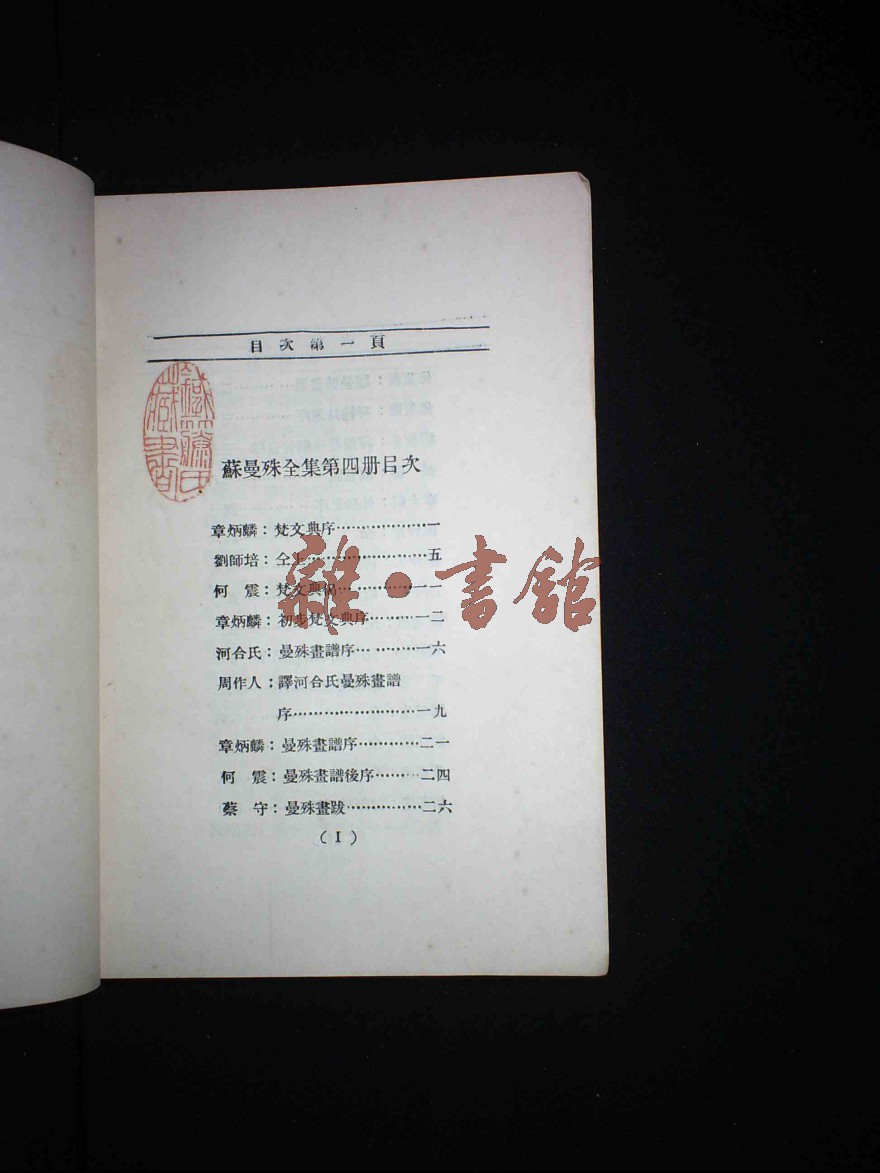 目次第一頁
蘇曼殊全集第四册目次
章炳麟：梵文典序………………一
劉師培：仝上……………………五
何　震：梵文典偈……………一一
章炳麟：初步梵文典序………一二
河合氏：曼殊畫譜序…………一六
周作人：譯河合氏曼殊畫譜
序……………………一九
章炳麟：曼殊畫譜序…………二一
何　震：曼殊畫譜後序………二四
蔡　守：曼殊畫跋……………二六
(I)
雜·書館
藏書